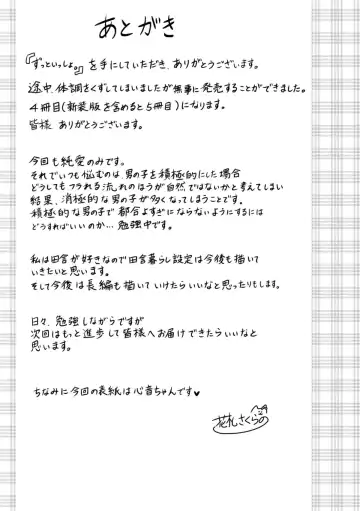 あとがき
『ずっといっしょ。』を手にしていただき、ありがとうございます。
途中、体調をくずしてしまいましたが無事に発売することができました。
4冊目(新装版を含めると5冊目)になります。
皆様 ありがとうございます。
今回も純愛のみです。
それでいつも悩むのは、男の子を積極的にした場合
どうしてもフラれる流れのほうが自然ではないかと考えてしまい
結果、消極的な男の子が多くなってしまうことです。
積極的な男の子で都合よすぎにならないようにするには
どうすればいいのか…勉強中です。
私は田舎が好きなので田舎暮らし設定は今後も描いて
いきたいと思います。
そして今後は長編も描いていけたらいいなと思ったりもします。
日々、勉強しながらですが
次回はもっと進歩して皆様へお届けできたらいいなと
思います。
ちなみに今回の表紙は心音ちゃんです♥
花札さくらの